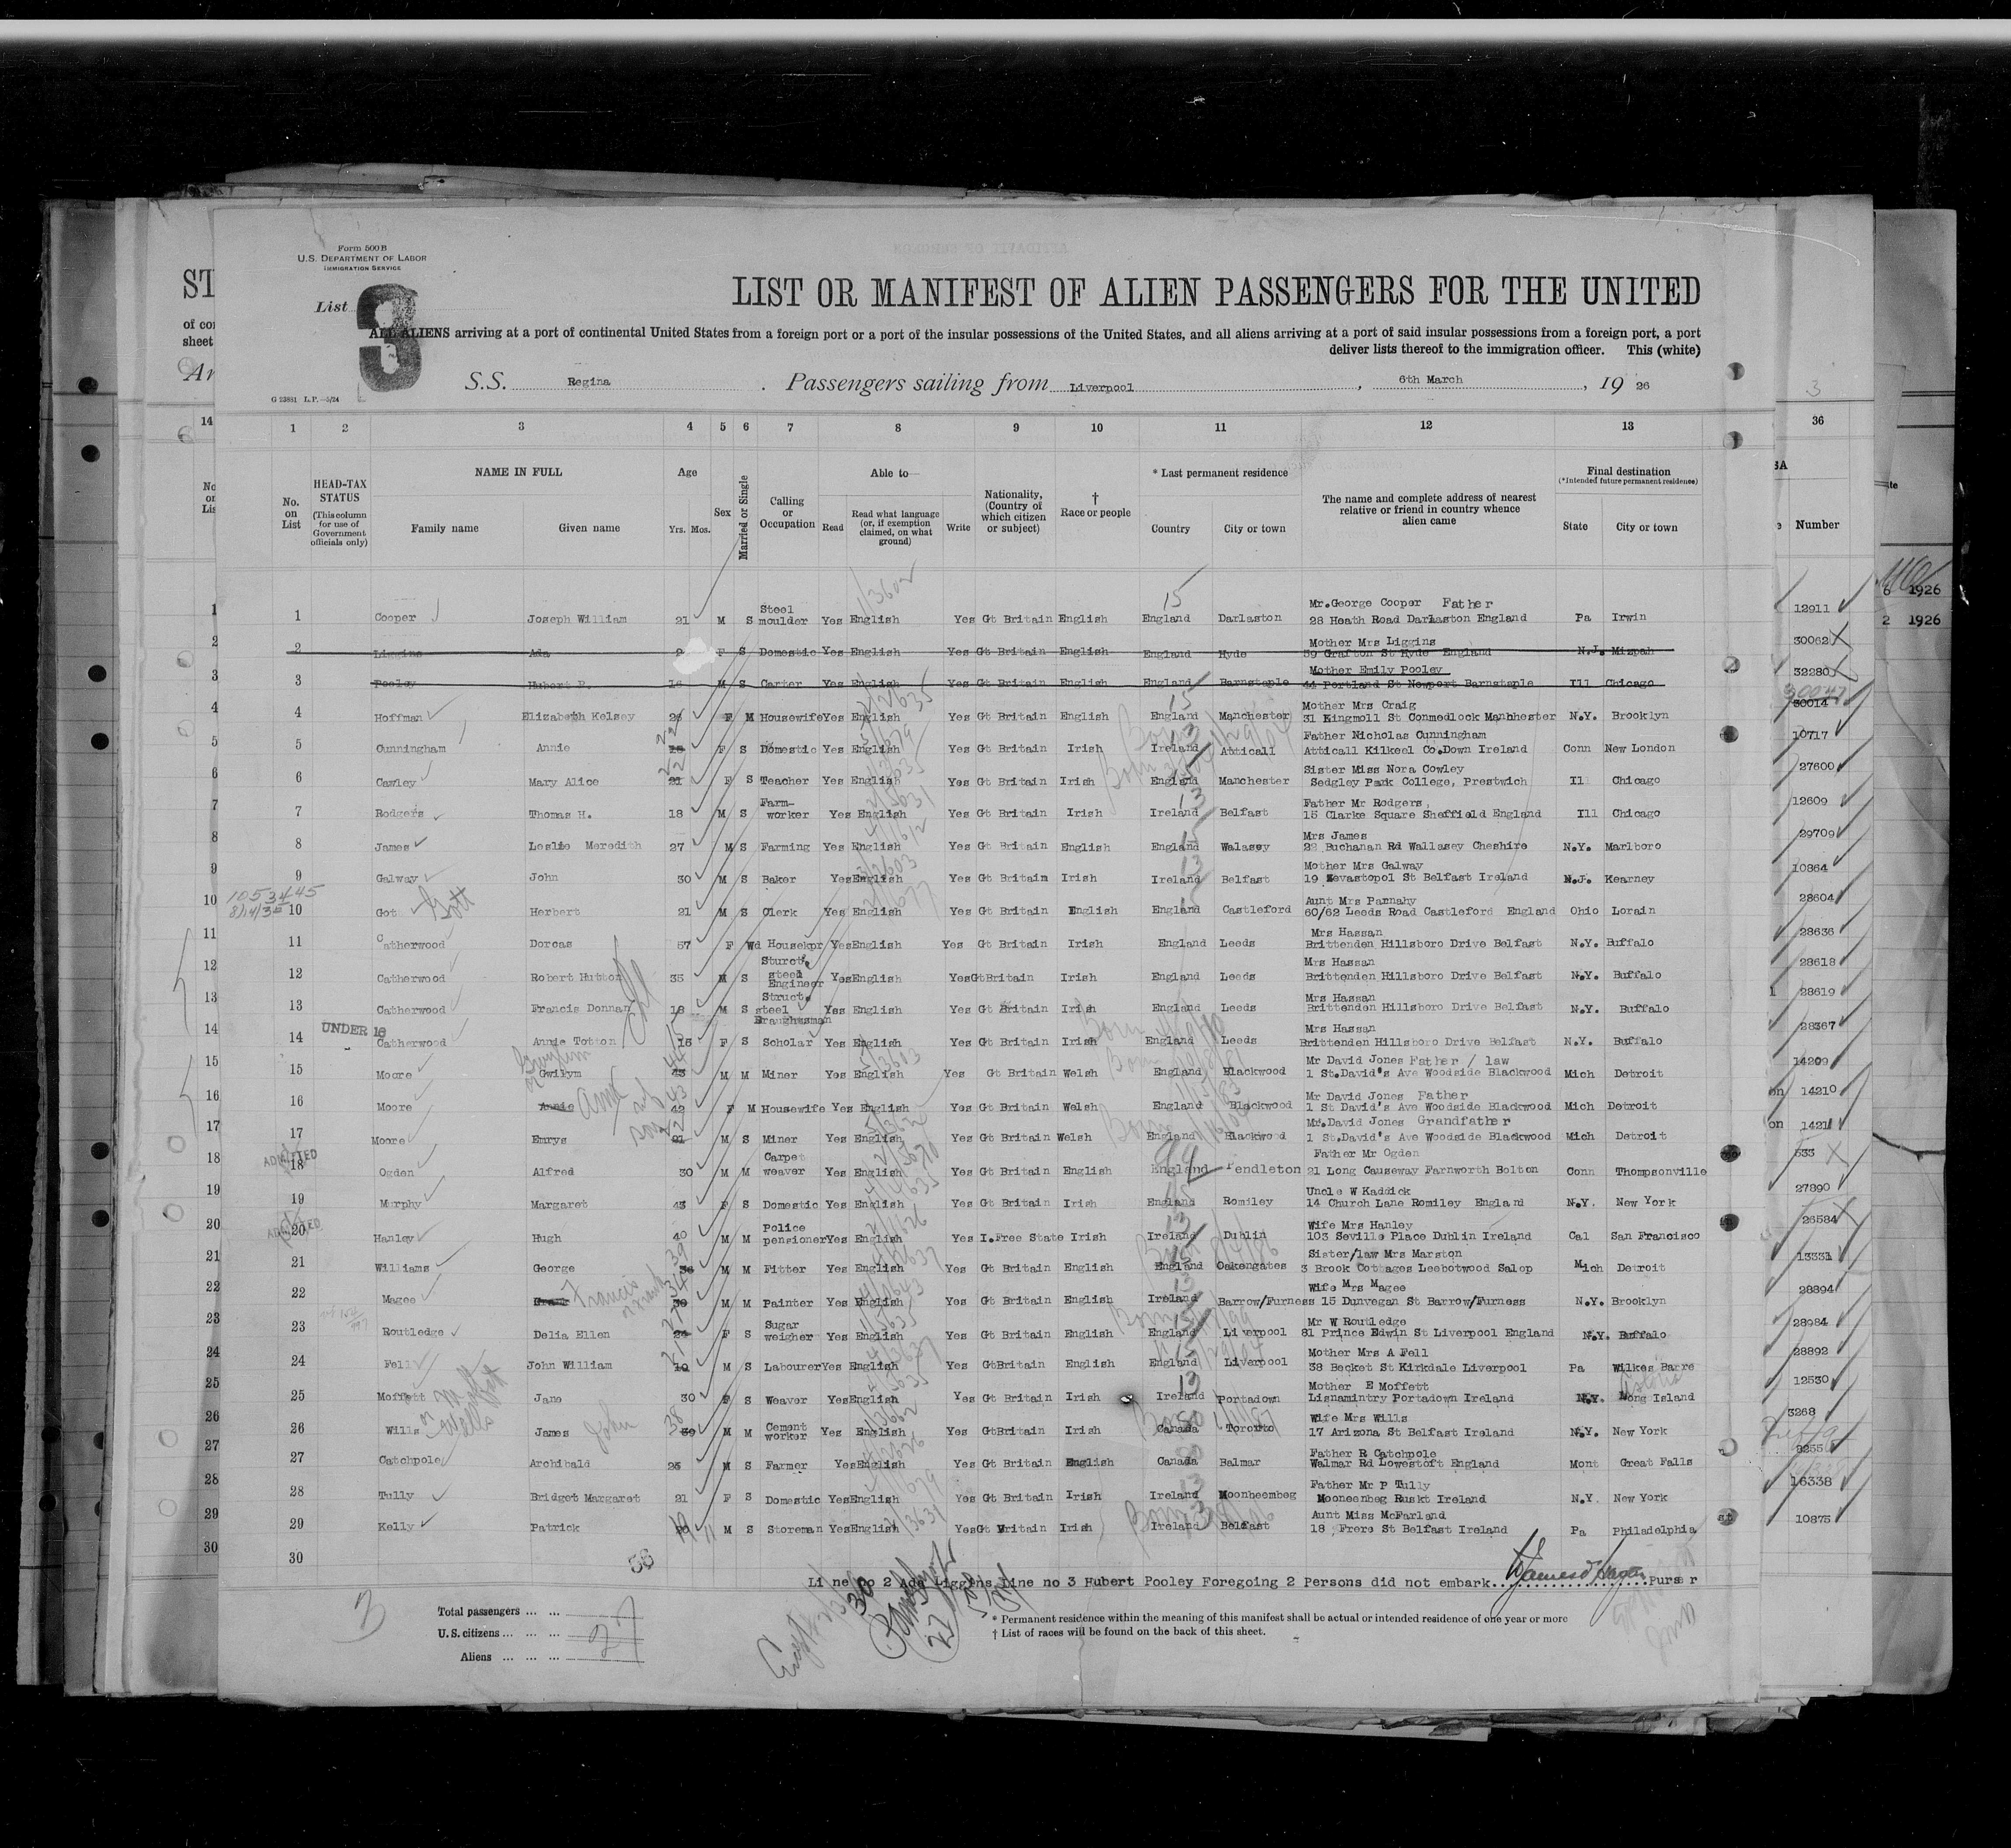 Form 500 B
U.S. DEPARTMENT OF LABOR
IMMIGRATION SERVICE
List 3
LIST OR MANIFEST OF ALIEN PASSENGERS FOR THE UNITED
ALL ALIENS arriving at a port of continental United States from a foreign port or a port of the insular possessions of the United States, and all aliens arriving at a port of said insular possessions from a foreign port, a port
deliver lists thereof to the immigration officer. This (white)
S.S. Regina . Passengers sailing from Liverpool , 6th March , 19 26
G 23881 L.P.—5/24
1 2 3 4 5 6 7 8 9 10 11 12 13 36
No. on List
HEAD-TAX STATUS (This column for use of Government officials only)
NAME IN FULL
Family name Given name
Age
Yrs. Mos.
Sex
Married or Single
Calling or Occupation
Able to
Read Read what language (or, if exemption claimed, on what ground) Write
Nationality, (Country of which citizen or subject)
† Race or people
* Last permanent residence
Country City or town
The name and complete address of nearest relative or friend in country whence alien came
Final destination
(*Intended future permanent residence)
State City or town
Number
1 Cooper Joseph William 21 M S Steel moulder Yes English Yes Gt Britain English England Darlaston Mr.George Cooper Father 28 Heath Road Darlaston England Pa Irwin 12911
2 Liggins Ada F S Domestic Yes English Yes Gt Britain English England Hyde Mother Mrs Liggins 59 Grafton St Hyde England N.J. Mizpah 30062
3 Pooley Hubert P. 16 M S Carter Yes English Yes Gt Britain English England Barnstaple Mother Emily Pooley 44 Portland St Newport Barnstaple Ill Chicago 32280
4 Hoffman Elizabeth Kelsey 26 F M Housewife Yes English Yes Gt Britain English England Manchester Mother Mrs Craig 31 Kingmoll St Conmedlock Manhhester N.Y. Brooklyn 30014
5 Cunningham Annie 22 F S Domestic Yes English Yes Gt Britain Irish Ireland Atticall Father Nicholas Cunningham Atticall Kilkeel Co.Down Ireland Conn New London 10717
6 Cawley Mary Alice 22 21 F S Teacher Yes English Yes Gt Britain Irish England Manchester Sister Miss Nora Cowley Sedgley Park College, Prestwich Il Chicago 27600
7 Rodgers Thomas H. 18 M S Farm-worker Yes English Yes Gt Britain Irish Ireland Belfast Father Mr Rodgers, 15 Clarke Square Sheffield England Ill Chicago 12609
8 James Leslie Meredith 27 M S Farming Yes English Yes Gt Britain English England Walasey Mrs James 28 Buchanan Rd Wallasey Cheshire N.Y. Marlboro 29709
9 Galway John 30 M S Baker Yes English Yes Gt Britain Irish Ireland Belfast Mother Mrs Galway 19 Sevastopol St Belfast Ireland N.J. Kearney 10864
10 Got Gott Herbert 21 M S Clerk Yes English Yes Gt Britain English England Castleford Aunt Mrs Pannahy 60/62 Leeds Road Castleford England Ohio Lorain 28604
11 Catherwood Dorcas 57 F Wd Housekpr Yes English Yes Gt Britain Irish England Leeds Mrs Hassan Brittenden Hillsboro Drive Belfast N.Y. Buffalo 28636
12 Catherwood Robert Hutton 35 M S Sturct. steel Engineer Yes English Yes GtBritain Irish England Leeds Mrs Hassan Brittenden Hillsboro Drive Belfast N.Y. Buffalo 28618
13 Catherwood Francis Donnan 18 M S Struct. steel Draughtsman Yes English Yes Gt Britain Irish England Leeds Mrs Hassan Brittenden Hillsboro Drive Belfast N.Y. Buffalo 28619
14 UNDER 16 Catherwood Annie Totton 15 F S Scholar Yes English Yes Gt Britain Irish England Leeds Mrs Hassan Brittenden Hillsboro Drive Belfast N.Y. Buffalo 28367
15 Moore Gwilym 44 43 M M Miner Yes English Yes Gt Britain Welsh England Blackwood Mr David Jones Father / law 1 St.David's Ave Woodside Blackwood Mich Detroit 14209
16 Moore Annie 43 42 F M Housewife Yes English Yes Gt Britain Welsh England Blackwood Mr David Jones Father 1 St David's Ave Woodside Blackwood Mich Detroit 14210
17 Moore Emrys 22 21 M S Miner Yes English Yes Gt Britain Welsh England Blackwood Mr.David Jones Grandfather 1 St.David's Ave Woodside Blackwood Mich Detroit 14211
18 ADMITTED Ogden Alfred 30 M M Carpet weaver Yes English Yes Gt Britain English England Pendleton Father Mr Ogden 21 Long Causeway Farnworth Bolton Conn Thompsonville 533
19 Murphy Margaret 43 F S Domestic Yes English Yes Gt Britain Irish England Romiley Uncle W Kaddick 14 Church Lane Romiley England N.Y. New York 27890
20 ADMITTED Hanley Hugh 40 M M Police pensioner Yes English Yes I.Free State Irish Ireland Dublin Wife Mrs Hanley 103 Seville Place Dublin Ireland Cal San Francisco 26584
21 Williams George 39 M M Fitter Yes English Yes Gt Britain English England Oakengates Sister/law Mrs Marston 3 Brook Cottages Leebotwood Salop Mich Detroit 13331
22 Magee Francis 34 M M Painter Yes English Yes Gt Britain English Ireland Barrow/Furness Wife Mrs Magee 15 Dunvegan St Barrow/Furness N.Y. Brooklyn 28894
23 Routledge Delia Ellen F S Sugar weigher Yes English Yes Gt Britain English England Liverpool Mr W Routledge 81 Prince Edwin St Liverpool England N.Y. Buffalo 28984
24 Fell John William M S Labourer Yes English Yes GtBritain English England Liverpool Mother Mrs A Fell 38 Becket St Kirkdale Liverpool Pa Wilkes Barre 28892
25 Moffett Jane 30 F S Weaver Yes English Yes Gt Britain Irish Ireland Portadown Mother E Moffett Lisnamintry Portadown Ireland N.Y. Long Island 12530
26 Wills or Wells James John 38 39 M M Cement worker Yes English Yes GtBritain Irish Canada Toronto Wife Mrs Wills 17 Arizona St Belfast Ireland N.Y. New York 3268
27 Catchpole Archibald 25 M S Farmer Yes English Yes Gt Britain English Canada Balmar Father R Catchpole Walmar Rd Lowestoft England Mont Great Falls
28 Tully Bridget Margaret 21 F S Domestic Yes English Yes Gt Britain Irish Ireland Moonheembeg Father Mr P Tully Mooneenbeg Ruskt Ireland N.Y. New York 16338
29 Kelly Patrick 19 11 M S Storeman Yes English Yes Gt Britain Irish Ireland Belfast Aunt Miss McFarland 18 Frere St Belfast Ireland Pa Philadelphia 10875
30
Li ne no 2 Ada Liggens Line no 3 Hubert Pooley Foregoing 2 Persons did not embark Purser
Total passengers ... ...
U.S. citizens ... ... ... 27
Aliens ... ... ...
* Permanent residence within the meaning of this manifest shall be actual or intended residence of one year or more
† List of races will be found on the back of this sheet.